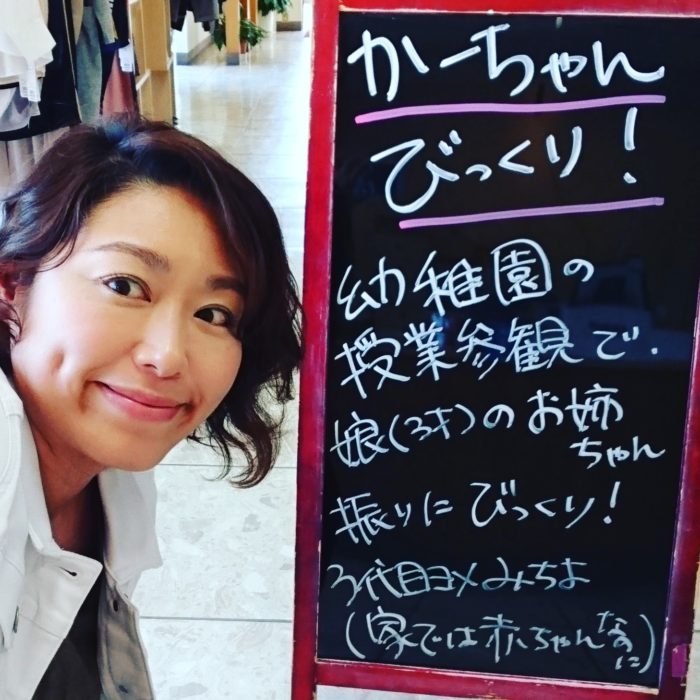 かーちゃん
びっくり！
幼稚園の
授業参観で、
娘(3才)のお姉
ちゃん
振りにびっくり！
3代目ヨメみちよ
(家では赤ちゃんなのに)